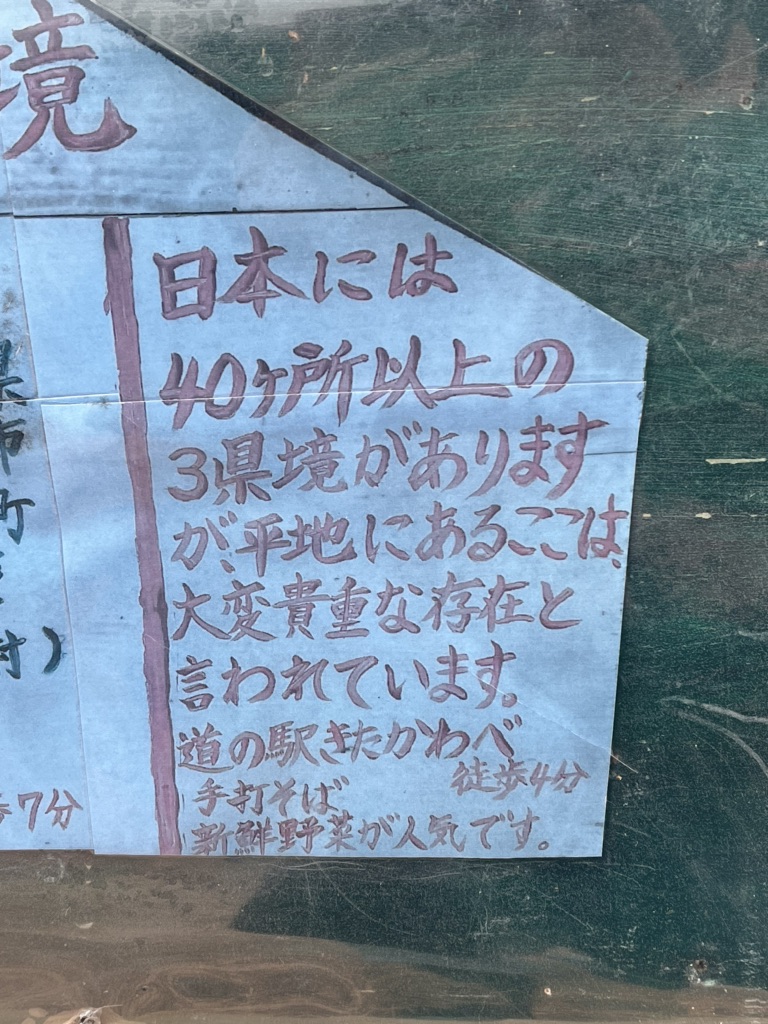 境
日本には
40ヶ所以上の
3県境があります
が、平地にあるここは、
大変貴重な存在と
言われています。
道の駅きたかわべ
徒歩4分
手打そば
新鮮野菜が人気です。
町
村)
歩7分